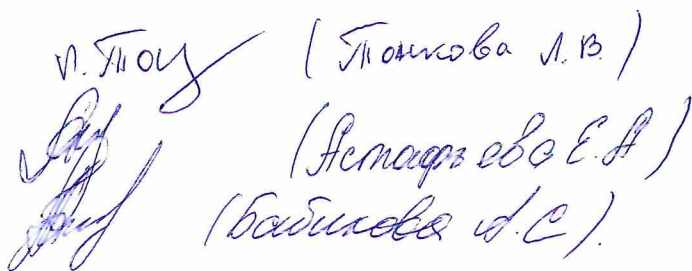 (Тонкова Л.В.)
(Астафьева Е.А)
(Бабикова А.С).